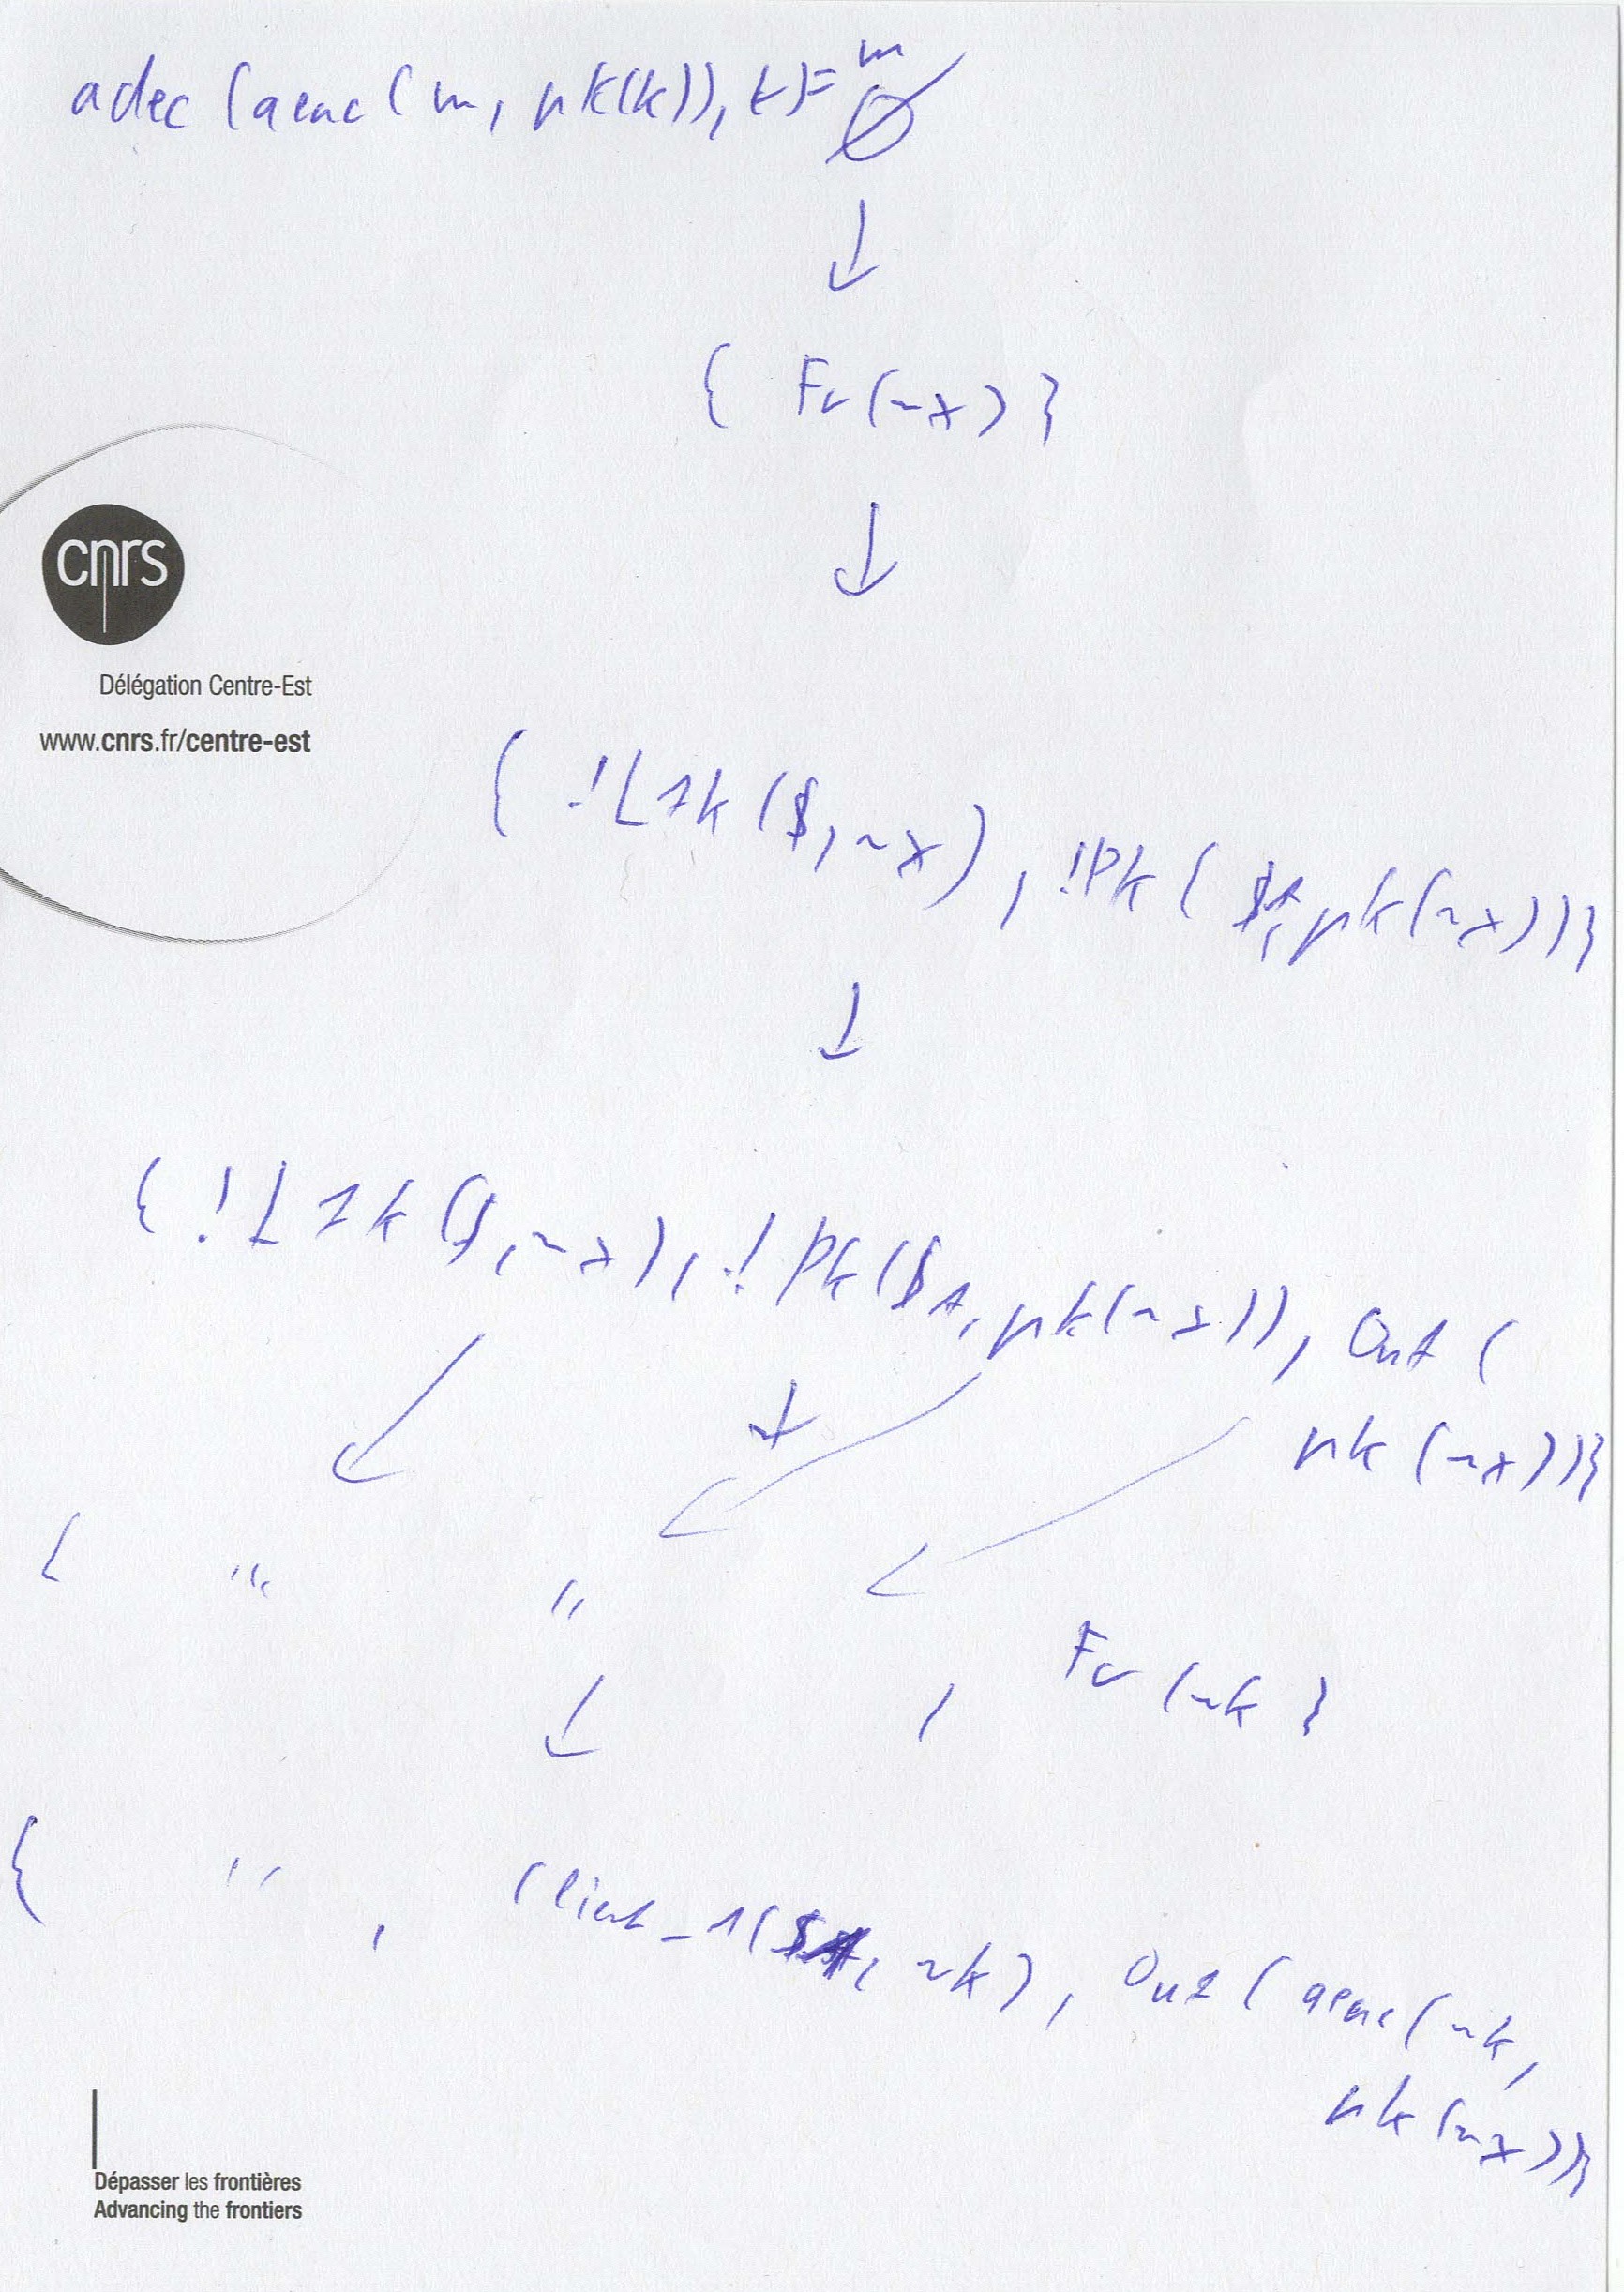 adec (aenc (m, pk(k)), k) = m
∅
↓
{ Fr (~x) }
↓
cnrs
Délégation Centre-Est
www.cnrs.fr/centre-est
{ !Ltk ($, ~x) , !Pk ( $A, pk(~x)) }
↓
{ !Ltk ($, ~x), !Pk ($A, pk(~x)), Out (
pk (~x)) }
{ " " , Fr (~k }
↓
{ " , Client_1($A, ~k), Out (aenc(~k,
pk (~x)) }
Dépasser les frontières
Advancing the frontiers